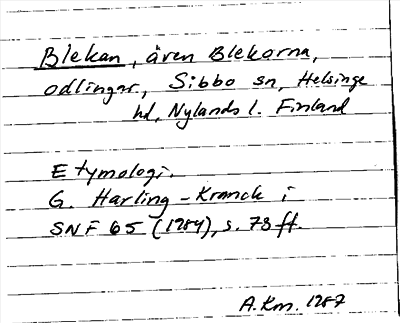 Blekan, även Blekorna,
odlingar, Sibbo sn, Helsinge
hd, Nylands l. Finland
Etymologi.
G. Harling-Kranck i
SNF 65 (1984), s. 73 ff.
A.Km. 1987